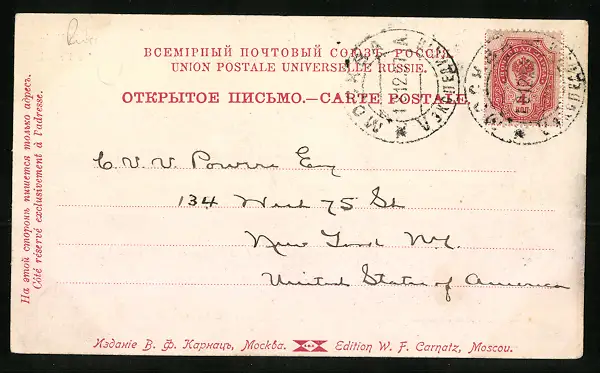 ВСЕМІРНЫЙ ПОЧТОВЫЙ СОЮЗЪ. РОССІЯ.
UNION POSTALE UNIVERSELLE RUSSIE.
ОТКРЫТОЕ ПИСЬМО.—CARTE POSTALE.
МОСКВА
МОСКВА
C. V. V. Powers Esq
134 West 75 St
New York NY.
United States of America
На этой сторонѣ пишется только адресъ.
Côté réservé exclusivement à l'adresse.
Изданіе В. Ф. Карнацъ, Москва. Edition W. F. Carnatz, Moscou.